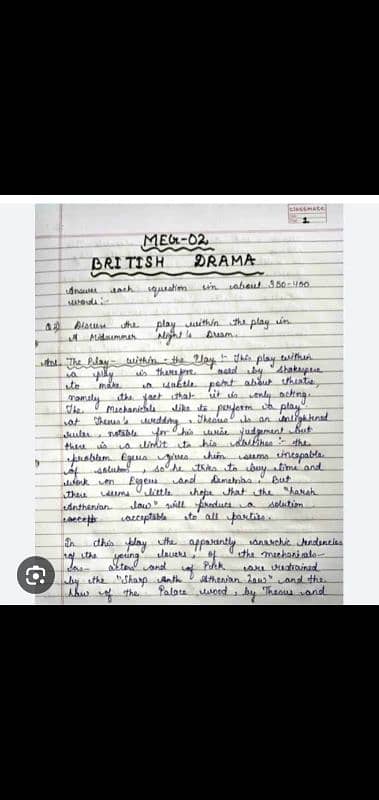 classmate
1
MEG-02
BRITISH DRAMA
Answer each question in about 350-400
words :-
Q 2) Discuss the play within the play in
A Midsummer Night's Dream.
Ans. The Play - within - the Play :- This play within
a play is therefore used by Shakespeare
to make a subtle point about theatre,
namely the fact that it is only acting.
The Mechanicals like to perform a play
at Theseus's wedding. Theseus is an enlightened
ruler, notable for his wise judgement but
there is a limit to his abilities :- the
problem Egeus gives him seems incapable
of solution, so he tries to buy time and
work on Egeus and Demetrius. But
there seems little hope that the "harsh
Anthenian law" will produce a solution
acceptable to all parties.
In this play the apparently anarchic tendencies
of the young lovers, of the mechanicals-
as- actors and of Puck are restrained
by the "Sharp Athenian law" and the
law of the Palace wood, by Theseus and